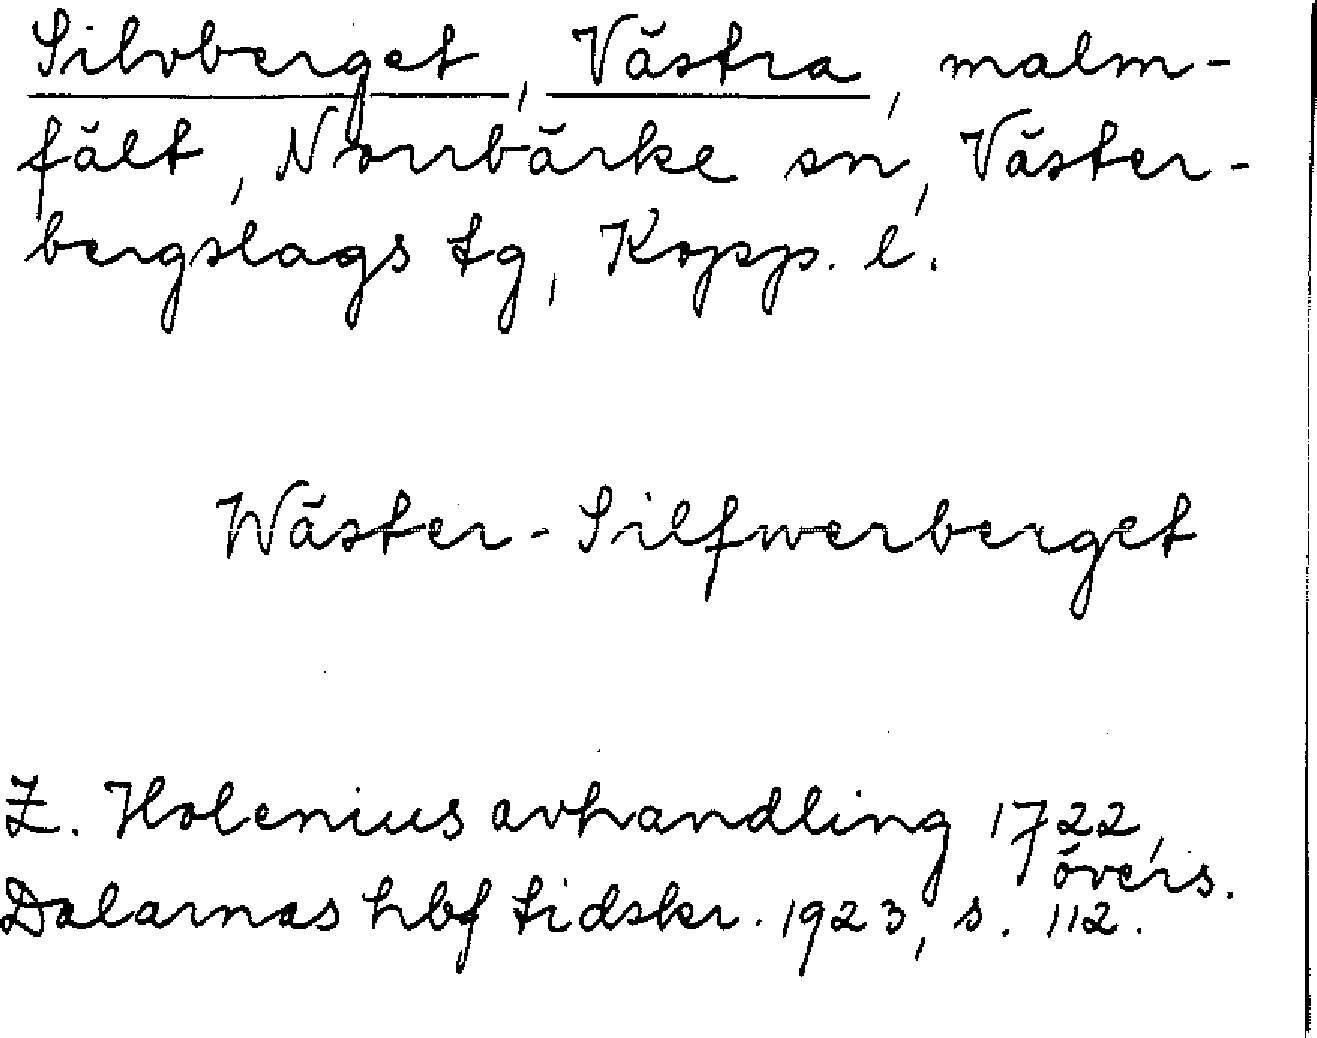 Silvberget, Västra, malm-
fält, Norrbärke sn, Väster-
bergslags tg, Kopp. l.
Wäster-Silfwerberget
Z. Holenius avhandling 1722,
övers.
Dalarnas hbf tidskr. 1923, s. 112.